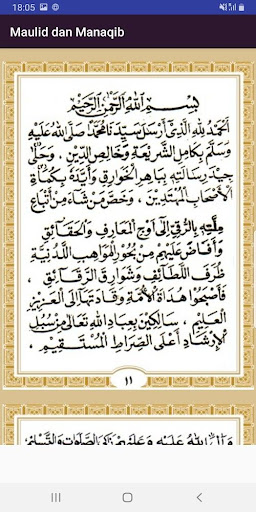 18:05
Maulid dan Manaqib
بِسْمِ اللهِ الرَّحْمٰنِ الرَّحِيْمِ
اَلْحَمْدُ لِلّٰهِ الَّذِيْ أَرْسَلَ سَيِّدَنَا مُحَمَّدً صَلَّى اللهُ عَلَيْهِ
وَسَلَّمَ بِكَامِلِ الشَّرِيْعَةِ وَخَالِصِ الدِّيْنِ ، وَحَلَّى
جِيْدَ رِسَالَتِهِ بِبَاهِرِ الْخَوَارِقِ وَأَيَّدَهُ بِكُمَاةِ
الْأَصْحَابِ الْمُهْتَدِيْنَ ، وَخَصَّ مَنْ شَاءَ مِنْ أَتْبَاعِ
مِلَّتِهِ بِالرُّقِيِّ إِلَى أَوْجِ الْمَعَارِفِ وَالْحَقَائِقِ
وَأَفَاضَ عَلَيْهِمْ مِنْ بُحُوْرِ الْمَوَاهِبِ اللَّدُنِيَّةِ
طُرَفَ اللَّطَائِفِ وَشَوَارِقَ الرَّقَائِقِ ،
فَأَصْبَحُوْا هُدَاةَ الْأُمَّةِ وَقَادَتَهَا إِلَى الْعَزِيْزِ
الْعَلِيْمِ ، سَالِكِيْنَ بِعِبَادِ اللهِ تَعَالَى مِنْ سُبُلِ
الْإِرْشَادِ أَعْلَى الصِّرَاطِ الْمُسْتَقِيْمِ .
١١